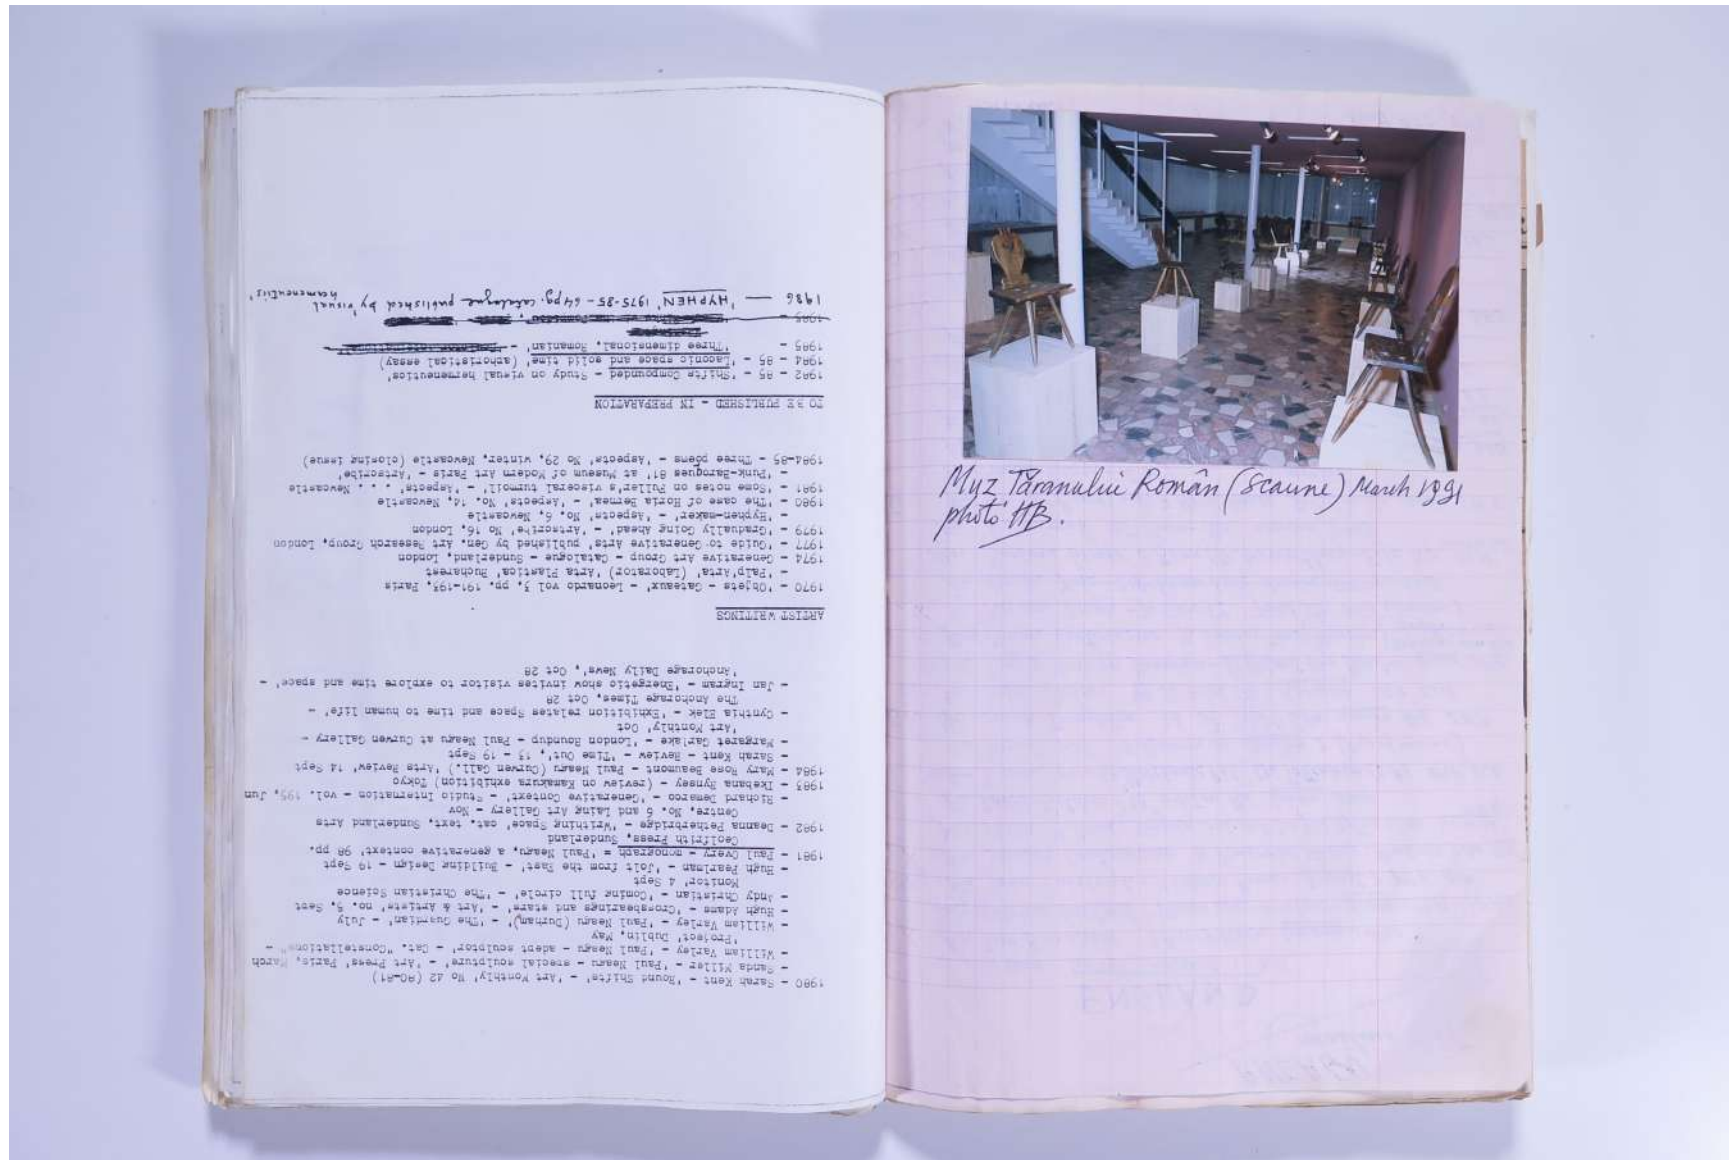 1980 - Sarah Kent - 'Round Shifts' - 'Art Monthly' No 42 (80-81)
- Sanda Miller - 'Paul Neagu - special sculpture' - 'Art Press' Paris, March
- William Varley - 'Paul Neagu - adept sculptor' - Cat. "Constellations" -
'Project' Dublin, May
- William Varley - 'Paul Neagu (Durham)' - 'The Guardian' - July
- Hugh Adams - 'Crossbearings and stars' - 'Art & Artists' no. 5, Sept
- Andy Christian - 'Coming full circle' - 'The Christian Science
Monitor' 4 Sept
- Hugh Pearlman - 'Jolt from the East' - Building Design - 19 Sept
1981 - Paul Overy - monograph = 'Paul Neagu, a generative context' 98 pp.
Ceolfrith Press, Sunderland
1982 - Deanna Petherbridge - 'Writhing Space' cat. text, Sunderland Arts
Centre, No. 6 and Laing Art Gallery - Nov
- Richard Demarco - 'Generative Context' - Studio Internation - vol. 195, Jun
1983 - Ikebana Ryusey - (review on Kamakura exhibition) Tokyo
1984 - Mary Rose Beaumont - Paul Neagu (Curwen Gall.) 'Arts Review' 14 Sept
- Sarah Kent - Review - 'Time Out', 13 - 19 Sept
- Margaret Garlake - 'London Roundup - Paul Neagu at Curwen Gallery -
'Art Monthly' Oct
- Cynthia Elek - 'Exhibition relates Space and time to human life' -
The Anchorage Times, Oct 28
- Jan Ingram - 'Energetic show invites visitor to explore time and space' -
'Anchorage Daily News', Oct 28
ARTIST WRITINGS
1970 - 'Objets - Gateaux' - Leonardo vol 3, pp. 191-193, Paris
- 'Palp'Arta' (Laborator) 'Arta Plastica' Bucharest
1974 - Generative Art Group - Catalogue - Sunderland, London
1977 - 'Guide to Generative Arts' published by Gen. Art Research Group, London
1979 - 'Gradually Going Ahead' - 'Artscribe' No 16, London
- 'Hyphen-maker' - 'Aspects' No. 6, Newcastle
1980 - 'The case of Horia Bernea' - 'Aspects' No. 14, Newcastle
1981 - 'Some notes on Fuller's visceral turmoil' - 'Aspects' . . . Newcastle
- 'Punk-Baroques 81' at Museum of Modern Art Paris - 'Artscribe'
1984-85 - Three poems - 'Aspects' No 29, winter, Newcastle (closing issue)
TO BE PUBLISHED - IN PREPARATION
1982 - 85 - 'Shifts Compounded - Study on visual hermeneutics'
1984 - 85 - 'Laconic space and solid time' (aphoristical essay)
1985 - 'Three dimensional, Romanian' -
1985 -
1986 — 'HYPHEN' 1975-85 - 64 pg. catalogue published by 'visual
hameneutiis'
Muz Țăranului Român (Scaune) March 1991
photo HB.